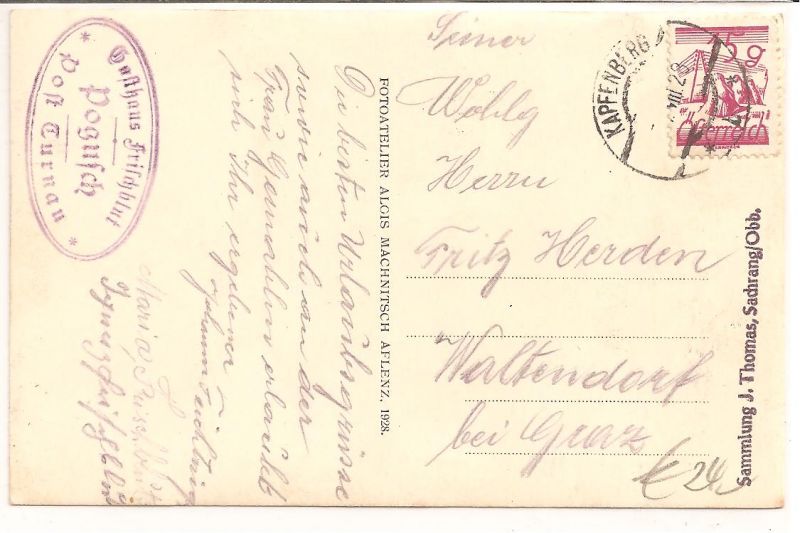 Gasthaus Frischhut
Pogusch
Post Turnau
Die besten Urlaubsgrüsse
sowie auch an der
Frau Gemahlin erlaubt
sich Ihr ergebener
Johann
Maria
Ignaz
FOTOATELIER ALGIS MACHNITSCH AFLENZ. 1928.
Seiner
Wohlg
Herrn
Fritz Herden
Waltendorf
bei Graz
KAPFENBERG
VII 28
15 g
Österreich
Sammlung J. Thomas, Sachrang/Obb.
€ 24